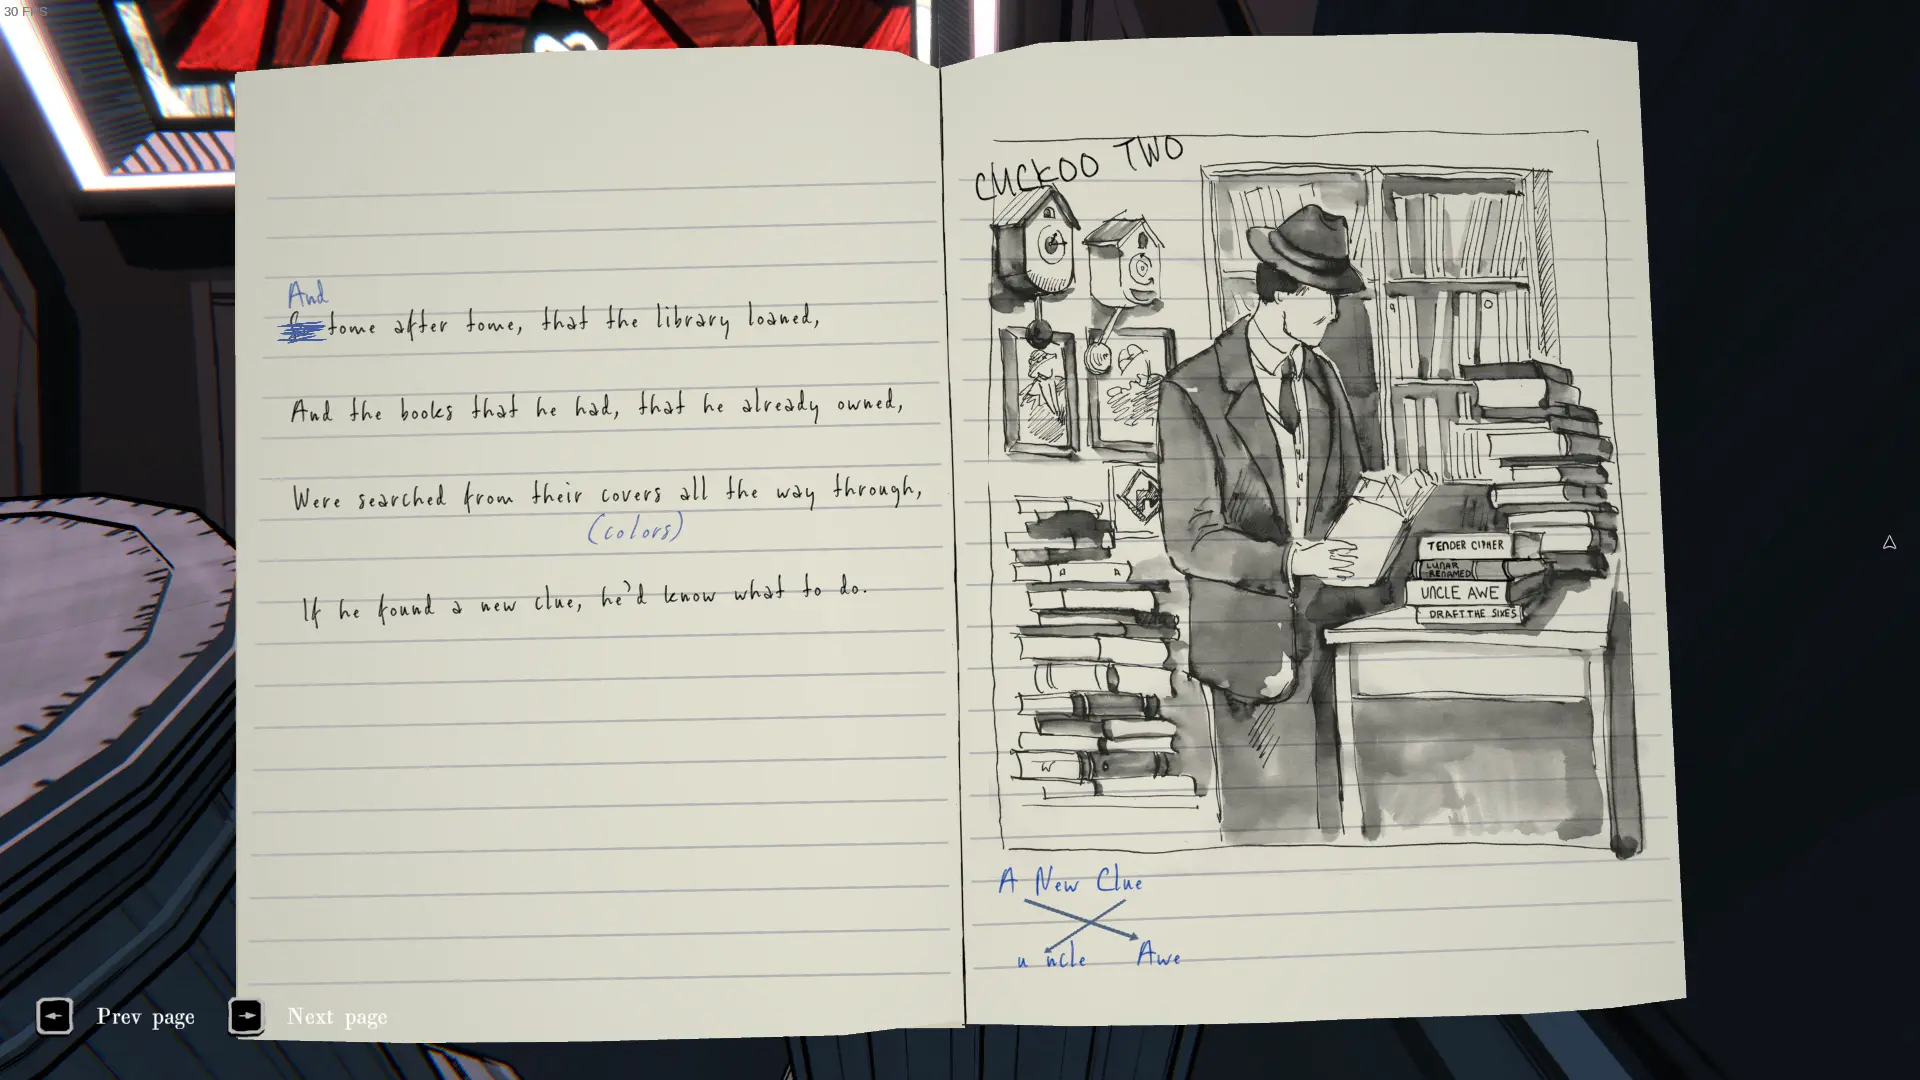 30 FPS
And
tome after tome, that the library loaned,
And the books that he had, that he already owned,
Were searched from their covers all the way through,
(colors)
If he found a new clue, he'd know what to do.
CUCKOO TWO
TENDER CIPHER
LUNAR
RENAMED
UNCLE AWE
DRAFT THE SIXES
A New Clue
u ncle Awe
Prev page
Next page